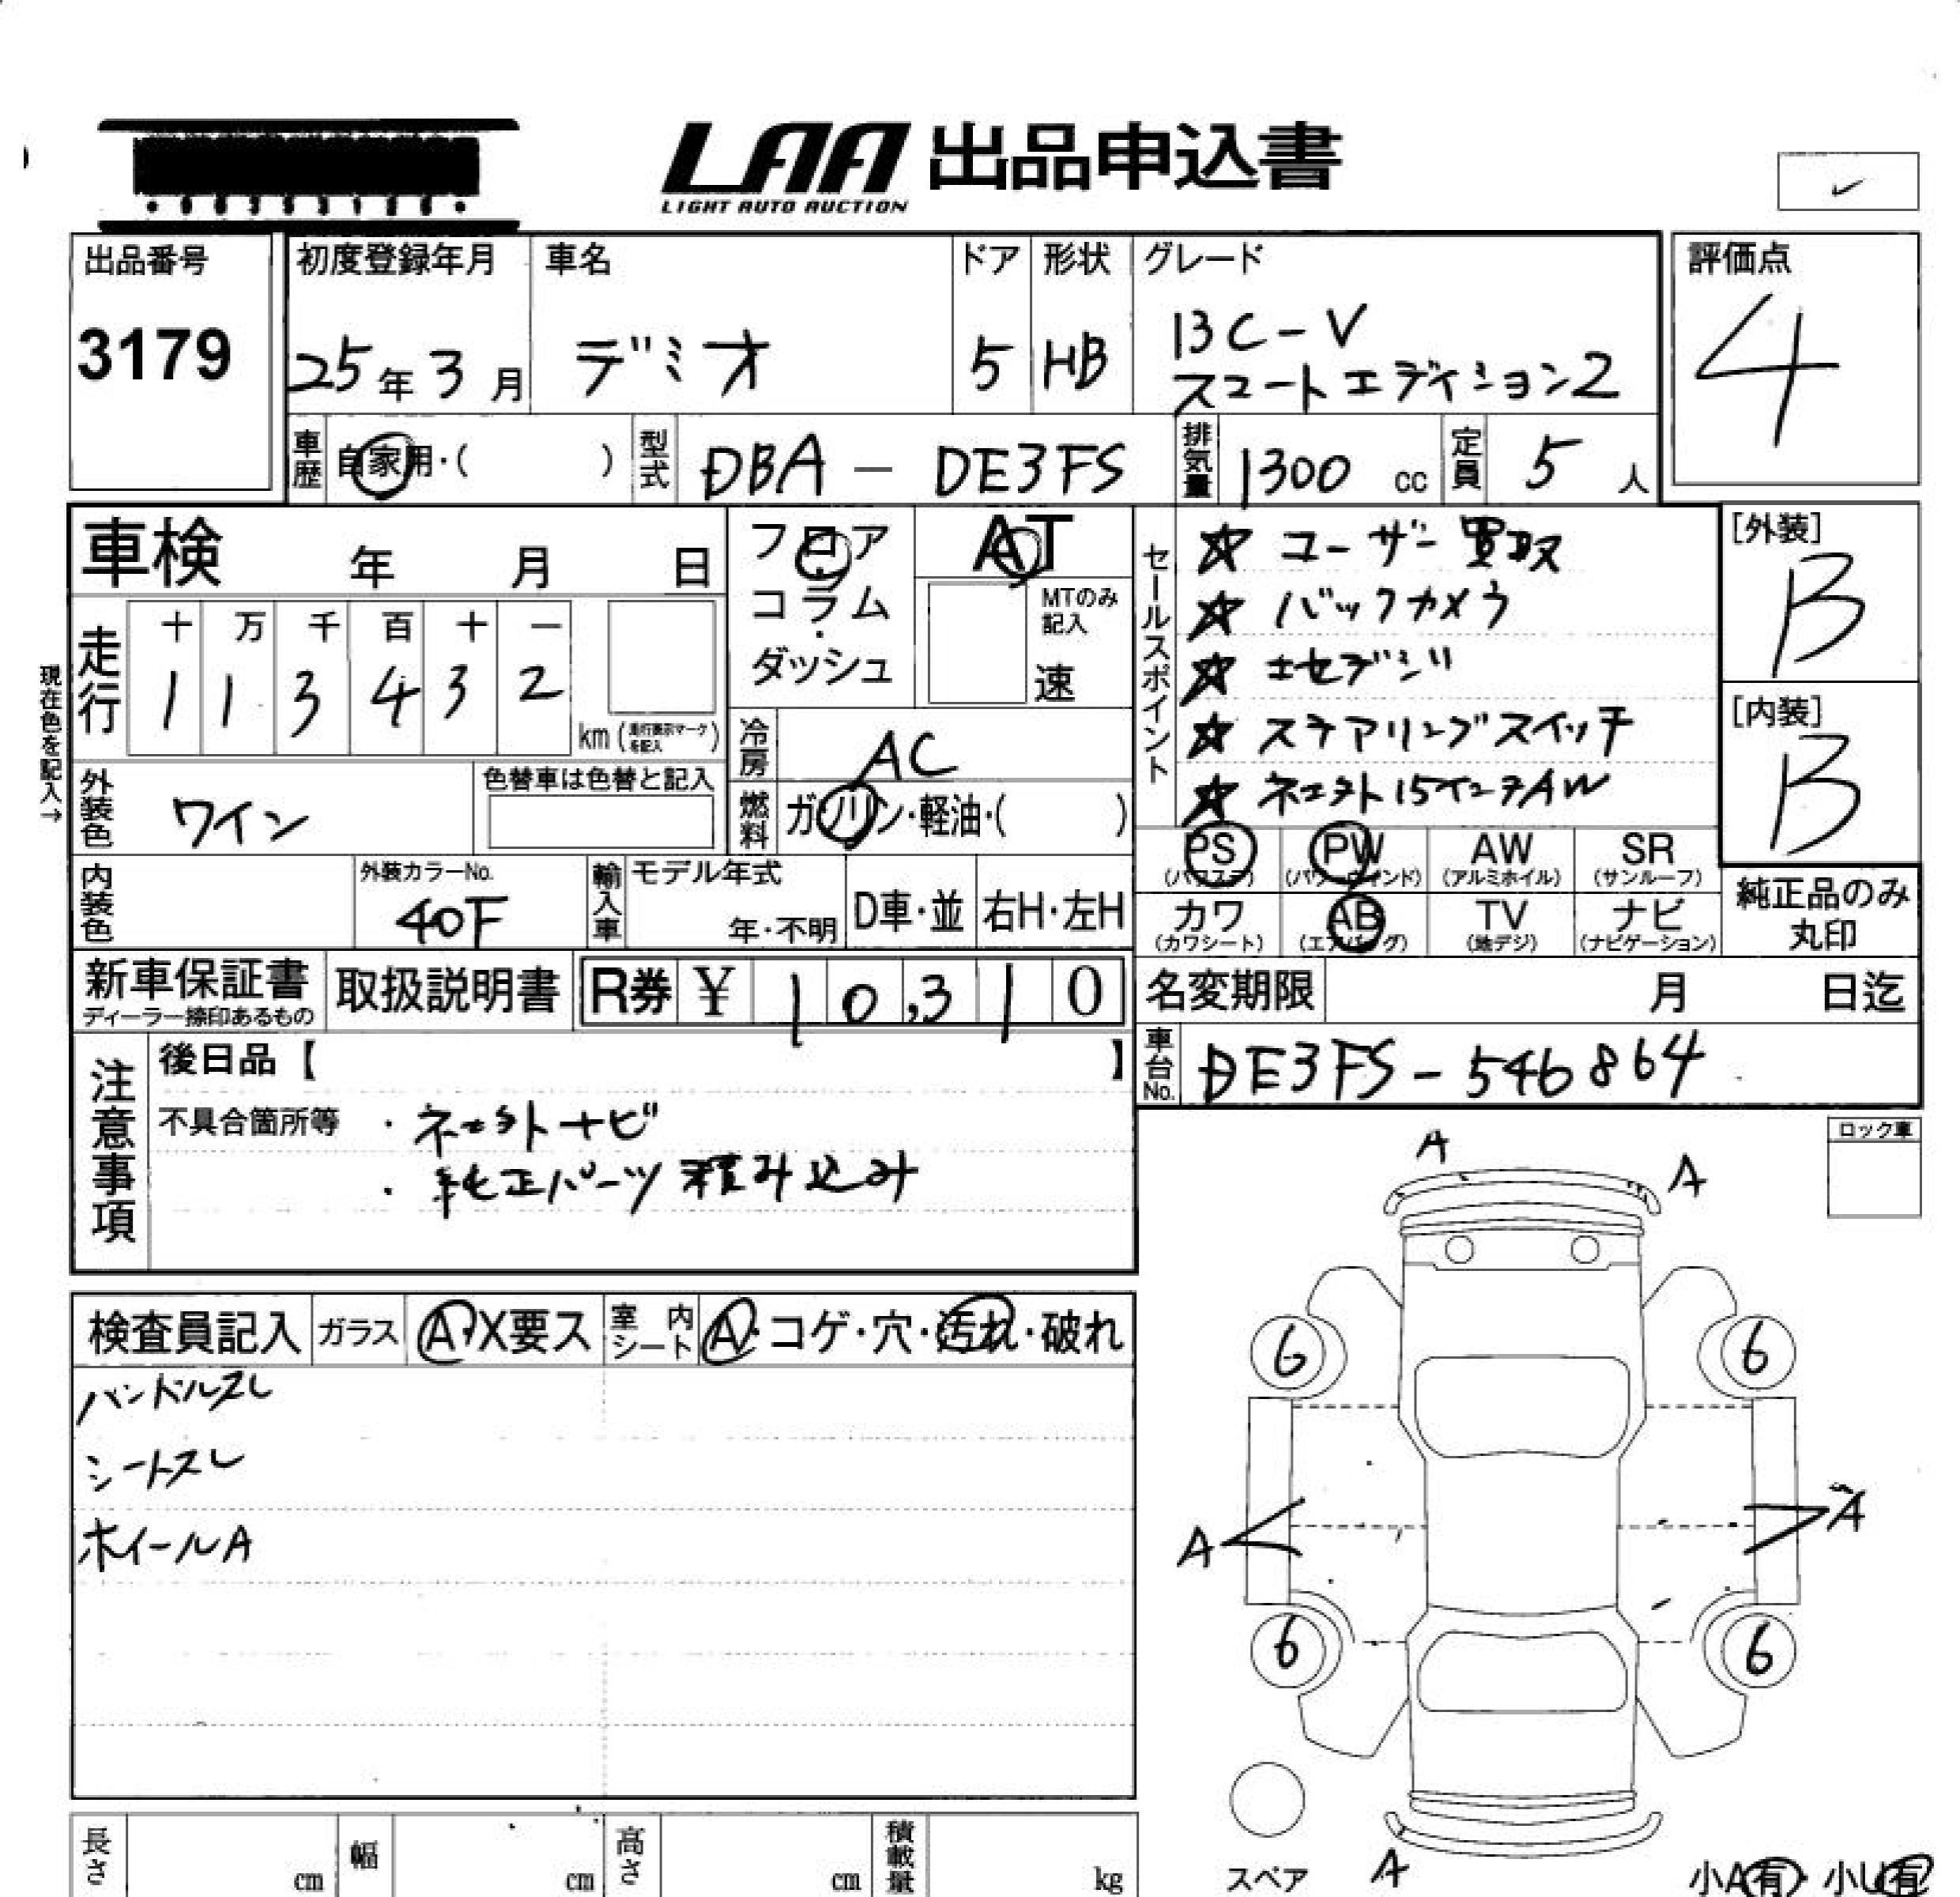 LAA 出品申込書
LIGHT AUTO AUCTION
出品番号
3179
初度登録年月
25年3月
車名
デミオ
ドア
5
形状
HB
グレード
13C-V
スマートエディション2
評価点
4
車歴 自家用・( )
型式 DBA - DE3FS
排気量 1300 cc
定員 5 人
車検 年 月 日
フロア・コラム・ダッシュ
AT
MTのみ記入
速
セールスポイント
☆ ユーザー買取
☆ バックカメラ
☆ ステアリングスイッチ
☆ 15インチAW
[外装]
B
[内装]
B
現在色を記入→
走行
十 万 千 百 十 一
1 1 3 4 3 2
km (走行表示マークを記入)
冷房 AC
外装色 ワイン
色替車は色替と記入
燃料 ガソリン・軽油・( )
PS (パワステ)
PW (パワーウィンド)
AW (アルミホイル)
SR (サンルーフ)
カワ (カワシート)
AB (エアバッグ)
TV (地デジ)
ナビ (ナビゲーション)
純正品のみ丸印
内装色
外装カラーNo.
40F
輸入車
モデル年式
年・不明
D車・並
右H・左H
新車保証書
ディーラー捺印あるもの
取扱説明書
R券 ¥ 10,310
名変期限 月 日迄
車台No. DE3FS-546864
注意事項
後日品【 】
不具合箇所等
・ナビ
・純正パーツ積み込み
ロック車
A
A
検査員記入
ガラス A・X要ス
室内シート A・コゲ・穴・汚れ・破れ
ハンドルスレ
シートスレ
ホイールA
6
6
A
A
6
6
A
スペア
小A有・小U有
長さ cm
幅 cm
高さ cm
積載量 kg